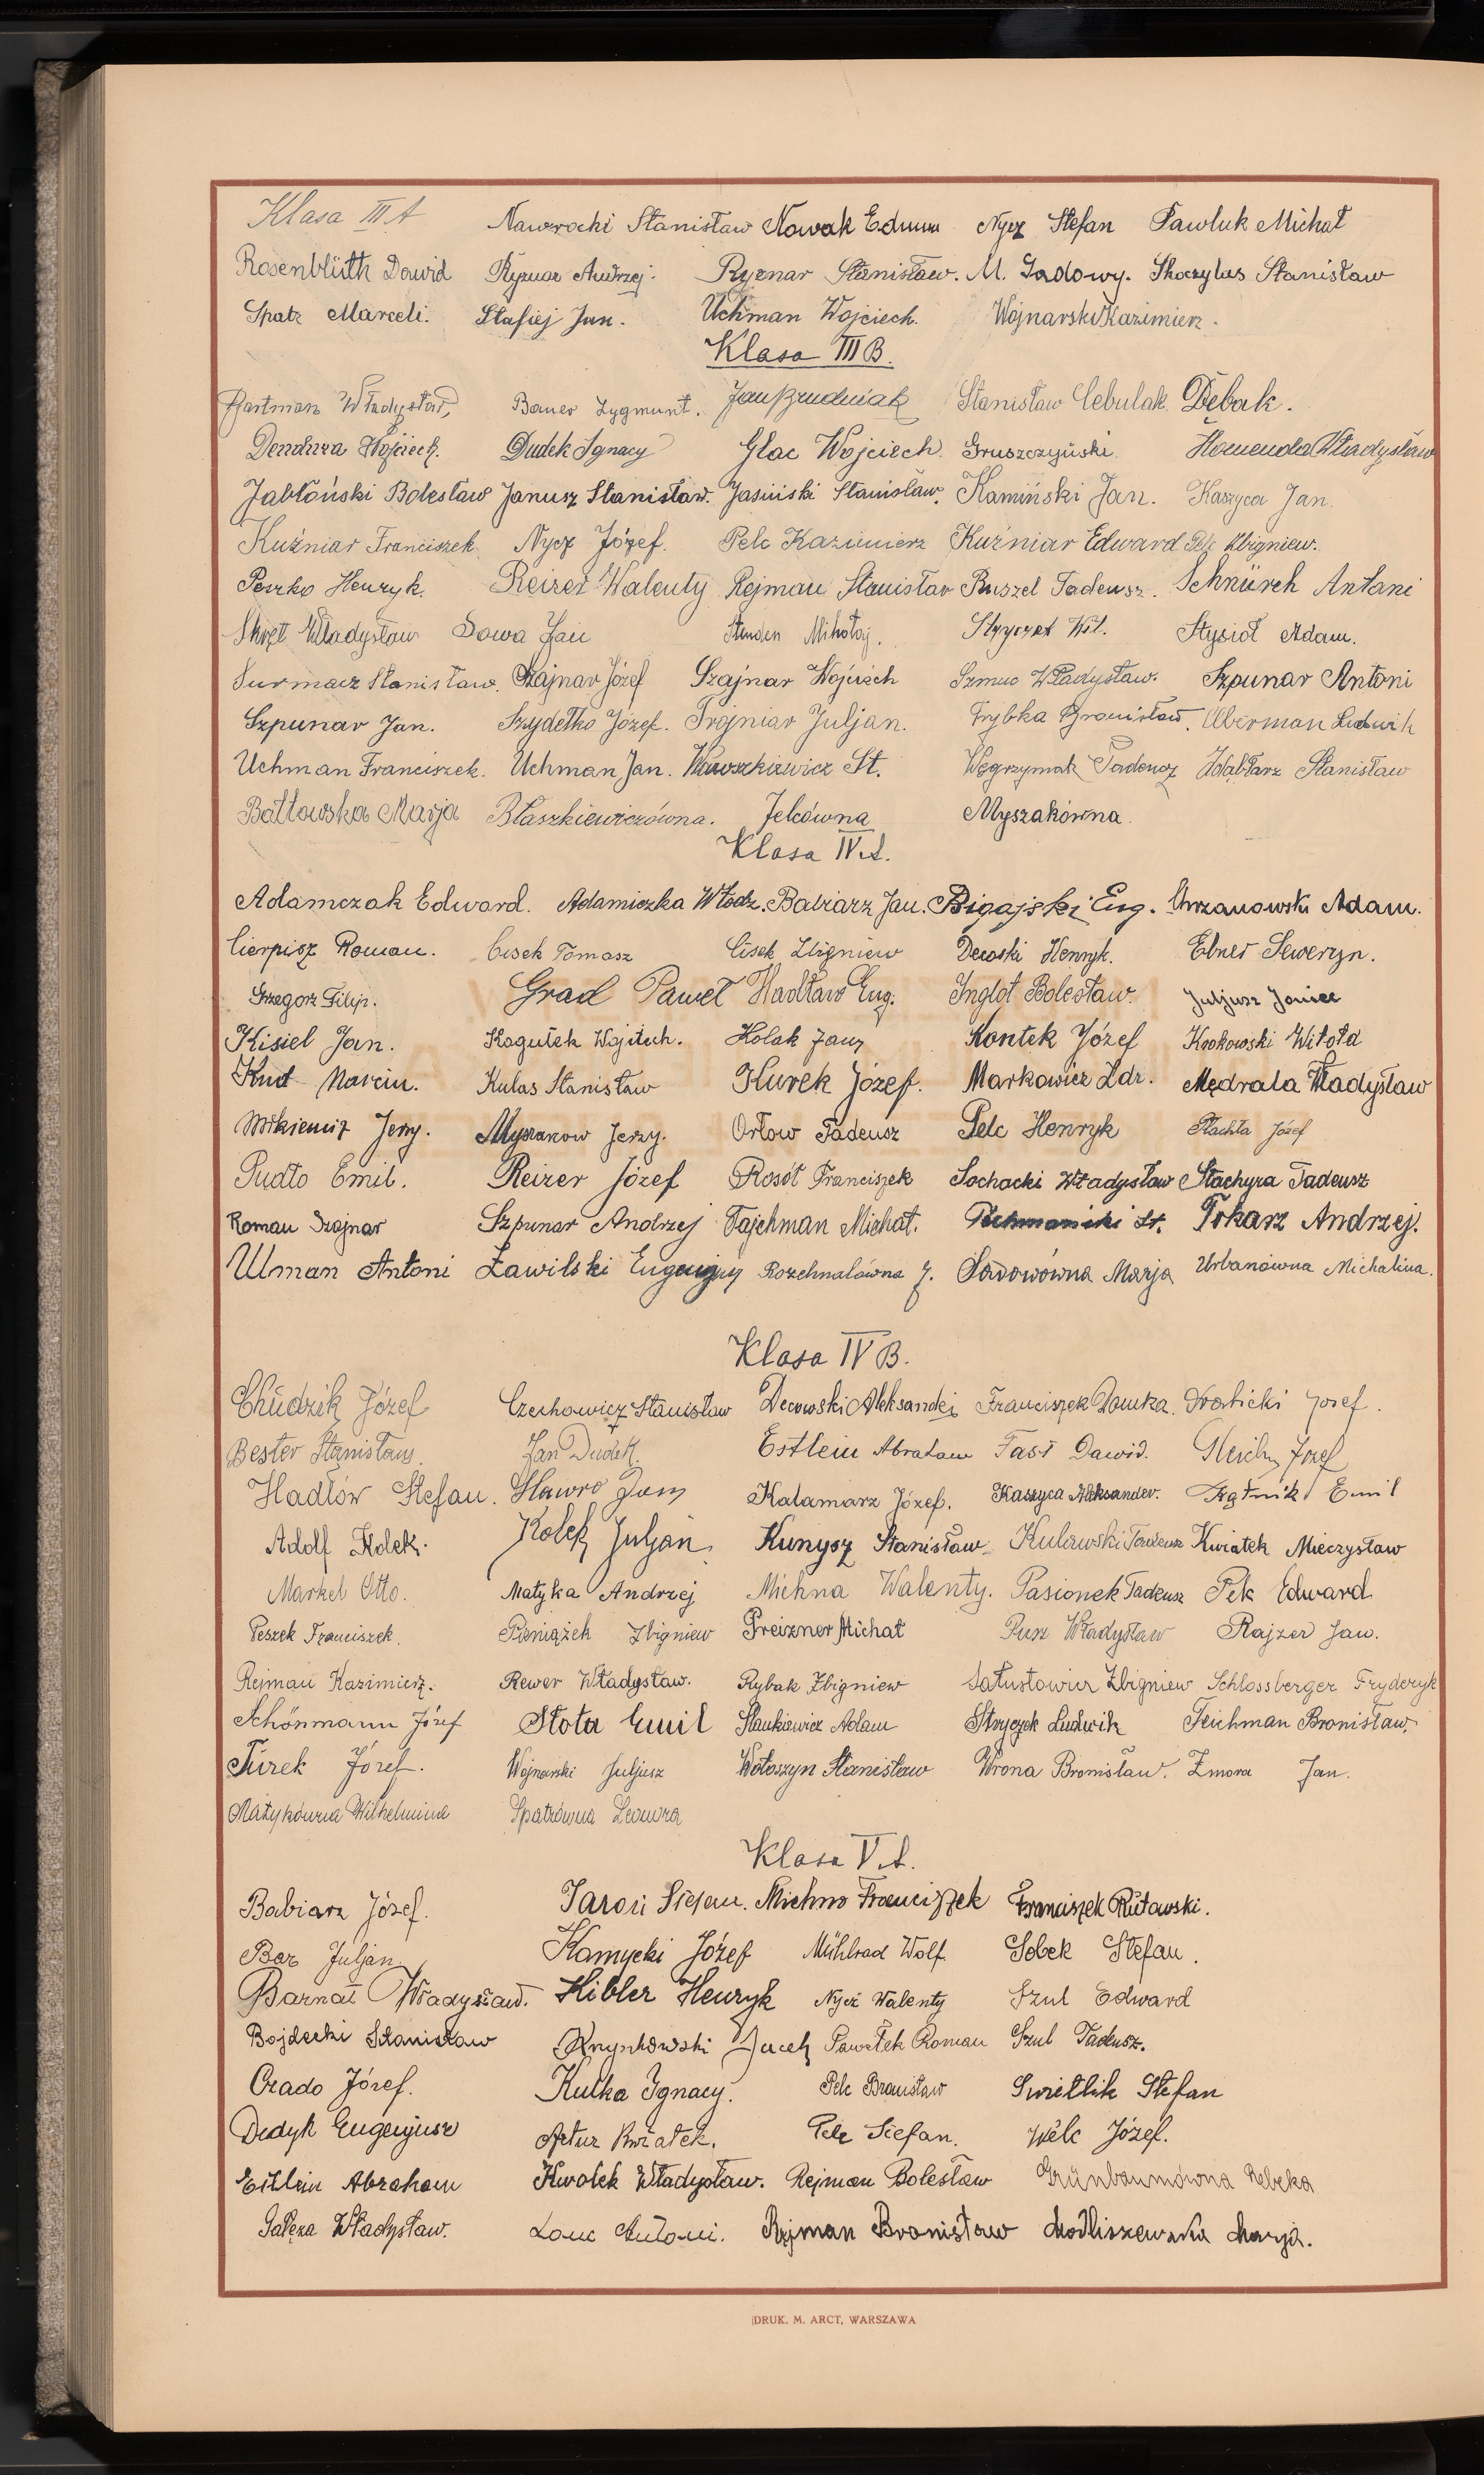 Klasa III A Nawrocki Stanisław Nowak Edmun Nycz Stefan Pawluk Michał
Rosenblüth Dawid Ryznar Andrzej. Ryznar Stanisław. M. Sadowy. Skoczylas Stanisław
Spatz Marceli. Stafiej Jan. Uchman Wojciech. Wojnarski Kazimierz.
Klasa III B.
Bartman Władysław, Bauer Zygmunt. Jan Brudniak Stanisław Cebulak Dębak.
Wojciech. Dudek Ignacy Głac Wojciech. Gruszczyński. Homenda Władysław
Jabłoński Bolesław Janusz Stanisław. Jasiński Stanisław. Kamiński Jan. Kaszyca Jan.
Kuźniar Franciszek. Nycz Józef. Pelc Kazimierz Kuźniar Edward Pelc Zbigniew.
Peszko Henryk. Reizer Walenty Rejman Stanisław Puszel Tadeusz. Schnürch Antoni
Skręt Władysław Sowa Jan Mikołaj. Stryczek Wił. Stysioł Adam.
Surmacz Stanisław. Szajnar Józef Szajnar Wojciech Szmuc Władysław. Szpunar Antoni
Szpunar Jan. Szydełko Józef. Trojniar Juljan. Trybka Bronisław. Uberman Ludwik
Uchman Franciszek. Uchman Jan. Wawszkiewicz St. Węgrzyniak Tadeusz Ździąbłarz Stanisław
Batłowska Marja Błaszkiewiczówna. Jelcówna Myszakówna.
Klasa IV A.
Adamczak Edward. Adamiczka Włodz. Babiarz Jan. Bigajski Eug. Chrzanowski Adam.
Cierpisz Roman. Cisek Tomasz Cisek Zbigniew Decoski Henryk. Ebner Seweryn.
Grzegorz Filip. Grad Paweł Hadław Eug. Inglot Bolesław. Juljusz Janiec
Kisiel Jan. Kogutek Wojciech. Kolak Jan, Kontek Józef Krokowski Witold
Knot Marcin. Kulas Stanisław Kurek Józef. Markowicz Zdz. Mędrala Władysław
Mikiewicz Jerzy. Myszakow Jerzy. Orłow Tadeusz Pelc Henryk Płachta Józef
Pudło Emil. Reizer Józef Rosół Franciszek Sochacki Władysław Stachyra Tadeusz
Roman Szajnar Szpunar Andrzej Tajchman Michał. St. Tokarz Andrzej.
Ulman Antoni Zawilski Eugenjusz Rozchnalówna J. Sadowówna Marja Urbanówna Michalina.
Klasa IV B.
Chudzik Józef Czechowicz Stanisław Decowski Aleksander Franciszek Dawka. Drabicki Józef.
Bester Stanisław. Jan Dudek. Estlein Abraham Fast Dawid. Gleich Józef
Hadłów Stefan. Hawro Jan Kalamarz Józef. Kaszyca Aleksander. Kątnik Emil
Adolf Kolek. Kolek Juljan Kunysz Stanisław Kulawski Tadeusz Kwiatek Mieczysław
Markel Otto. Matyka Andrzej Michna Walenty. Pasionek Tadeusz Pek Edward
Peszek Franciszek. Pieniążek Zbigniew Preizner Michał Pusz Władysław Rajzer Jan.
Rejman Kazimierz. Rewer Władysław. Rybak Zbigniew Sałustowicz Zbigniew Schlossberger Fryderyk
Schönmann Józef Słota Emil Stankiewicz Adam Stryczek Ludwik Teichman Bronisław.
Turek Józef. Wojnarski Juljusz Wołoszyn Stanisław Wrona Bronisław. Zmora Jan.
Matykówna Wilhelmina Spatzówna Leonora
Klasa V A.
Babiarz Józef. Jaroń Stefan. Michno Franciszek Franciszek Rutowski.
Bar Juljan Kamycki Józef Mühlrad Wolf. Sobek Stefan.
Barnat Władysław. Kibler Henryk Nycz Walenty Szul Edward
Bojdecki Stanisław Krynkowski Jacek Pawełek Roman Szul Tadeusz.
Czado Józef. Kutka Ignacy. Pelc Bronisław Swietlik Stefan
Dedyk Eugenjusz Artur Kwiatek. Pelc Stefan. Welc Józef.
Estlein Abraham Kwolek Władysław. Rejman Bolesław Grünbaumówna Rebeka
Gałęza Władysław. Antoni. Rejman Bronisław Modliszewska Marja.
DRUK. M. ARCT, WARSZAWA